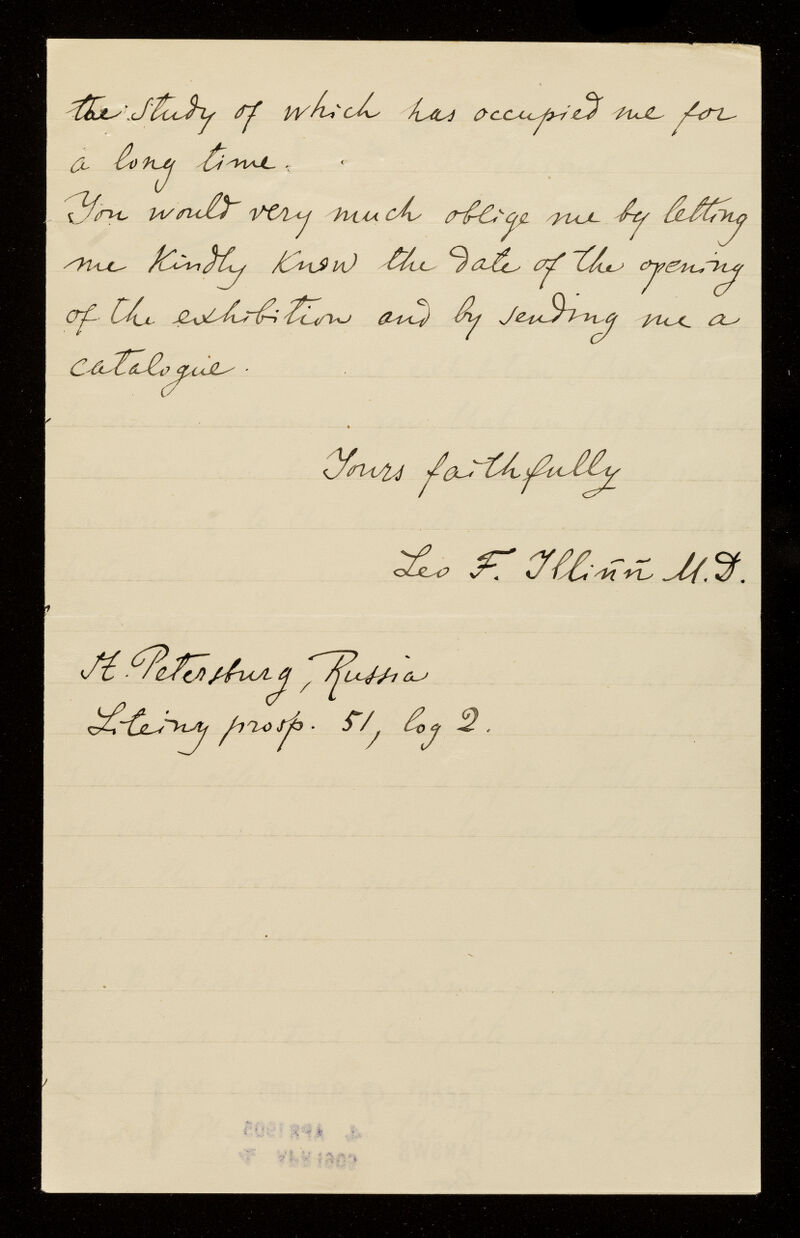 the study of which has occupied me for
a long time.
You would very much oblige me by letting
me kindly know the date of the opening
of the exhibition and by sending me a
catalogue.
Yours faithfully
Leo F. Illiñn M.D.
St. Petersburg, Russia
Liteiny prosp. 51, log 2.
4 APR 1905